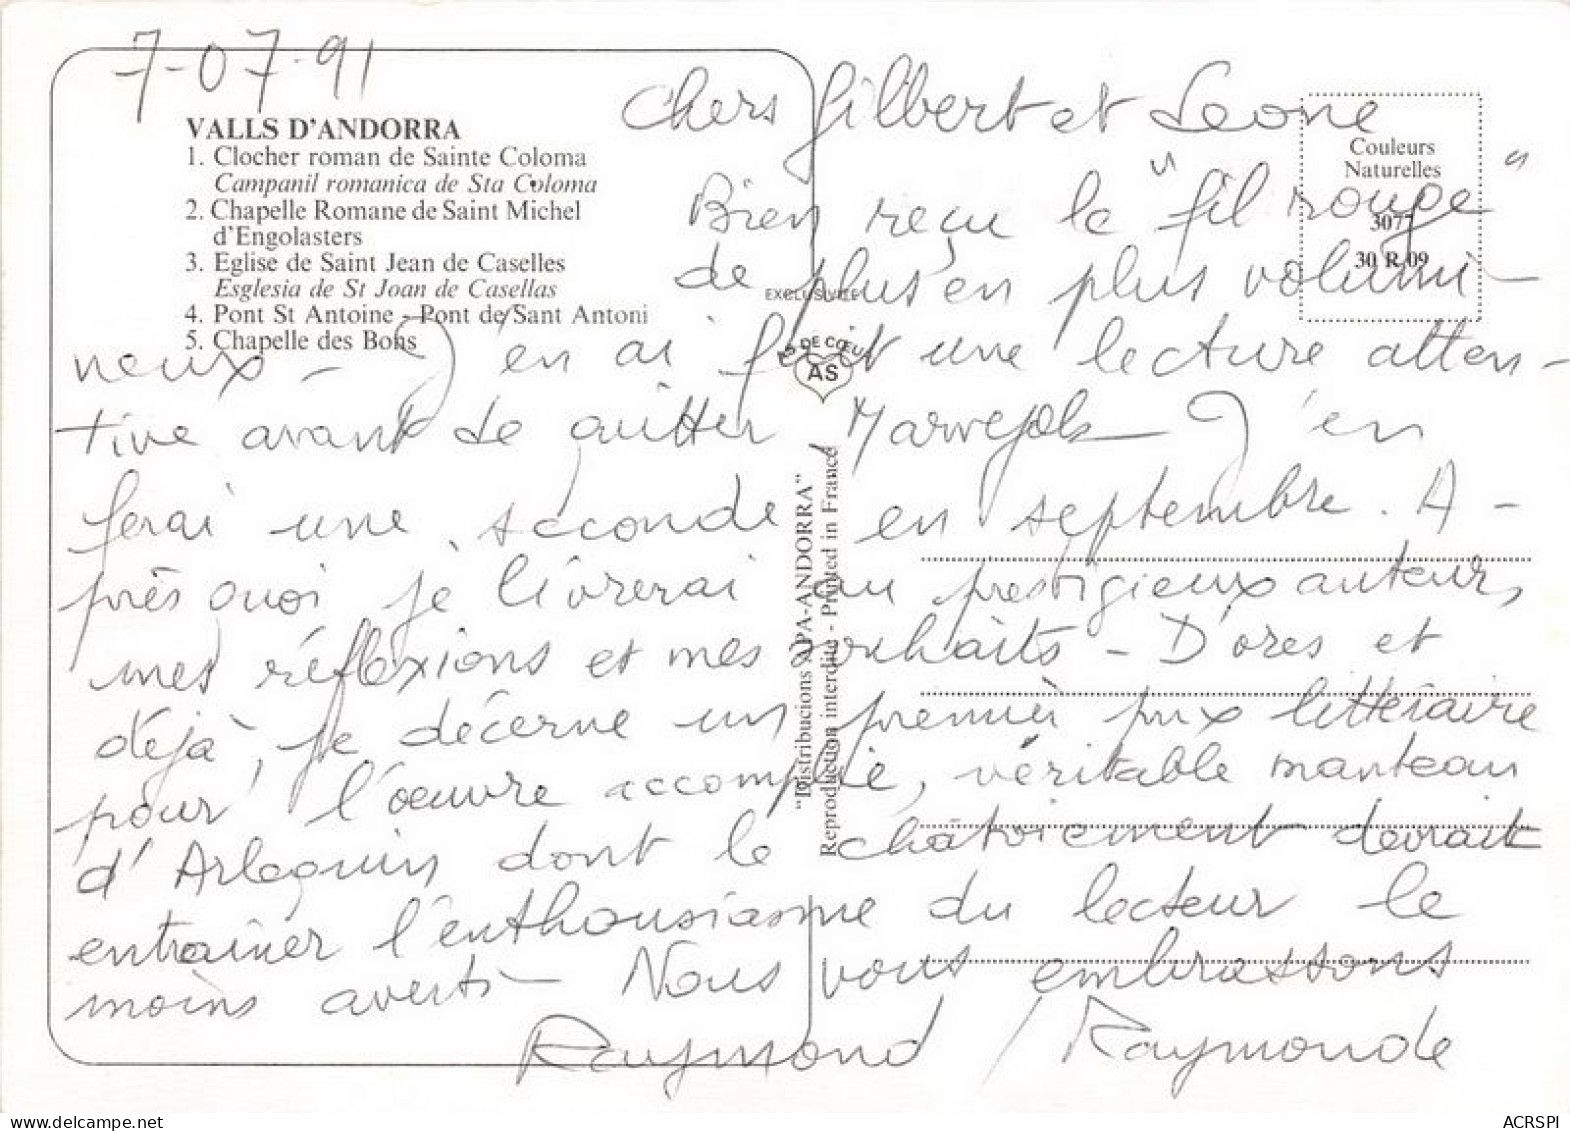 7-07-91
VALLS D'ANDORRA
1. Clocher roman de Sainte Coloma
Campanil romanica de Sta Coloma
2. Chapelle Romane de Saint Michel
d'Engolasters
3. Eglise de Saint Jean de Caselles
Esglesia de St Joan de Casellas
4. Pont St Antoine - Pont de Sant Antoni
5. Chapelle des Bons
Couleurs
Naturelles
3077
30 R 09
EXCLUSIVITE
AS DE CŒUR
AS
"Distribucions APA-ANDORRA"
Reproduction interdite - Printed in France
Chers Gilbert et Leone
Bien reçu le "fil rouge"
de plus en plus volumi-
neux - J'en ai fait une lecture atten-
tive avant de quitter Marvejols - J'en
ferai une seconde en septembre. A-
près quoi je livrerai au prestigieux auteur,
mes réflexions et mes souhaits - D'ores et
déjà, je décerne un premier prix littéraire
pour l'œuvre accomplie, véritable manteau
d'Arlequin dont le chatoiement devrait
entraîner l'enthousiasme du lecteur le
moins averti - Nous vous embrassons
Raymond / Raymonde
www.delcampe.net
ACRSPI